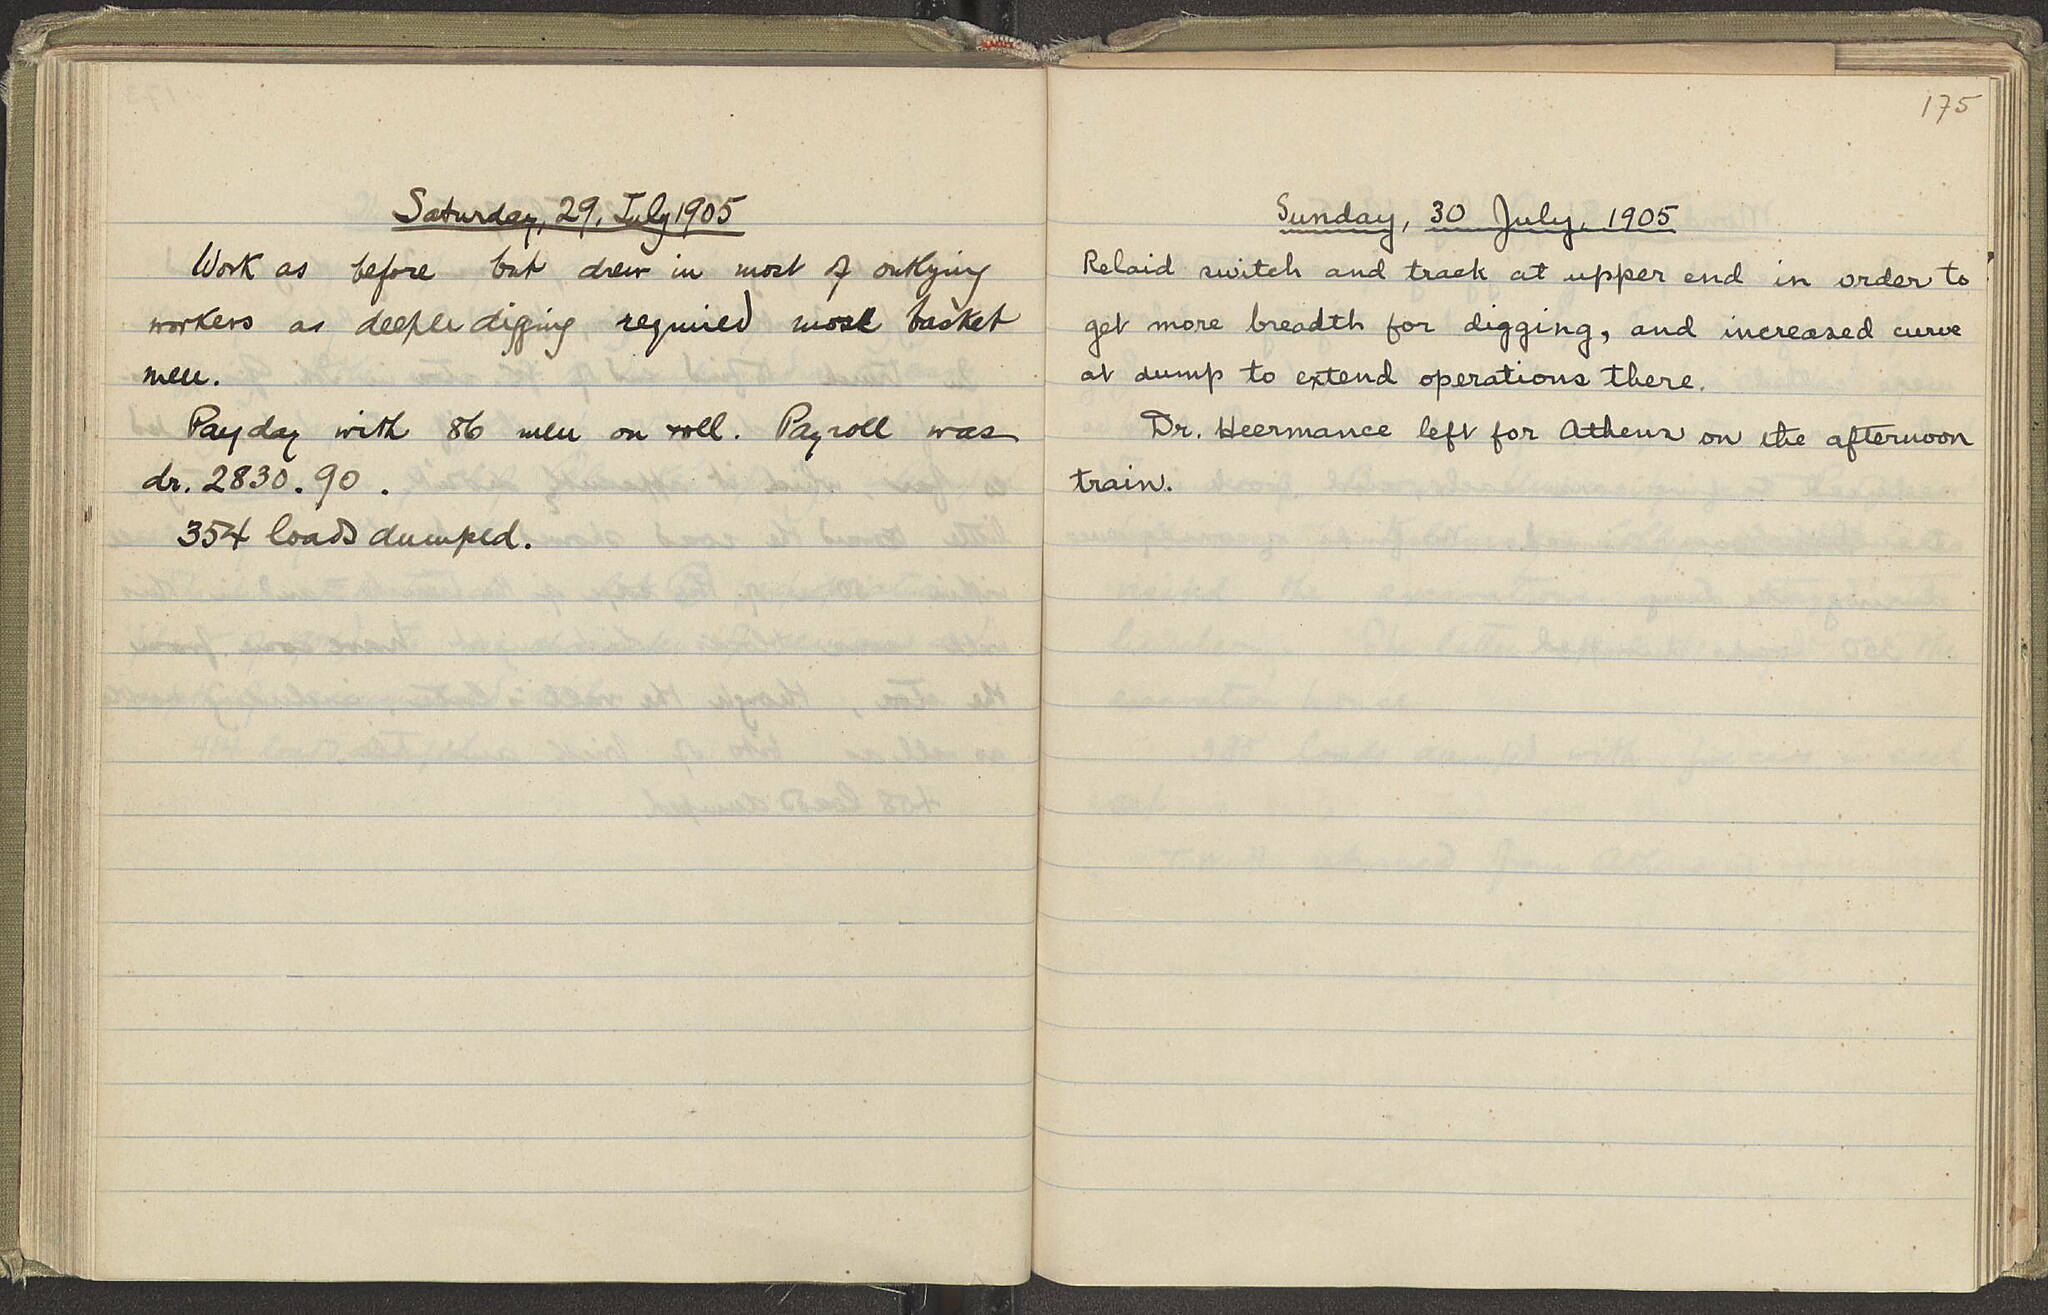 Saturday, 29, July 1905
Work as before but drew in most of outlying
workers as deeper digging required most basket
men.
Payday with 86 men on roll. Payroll was
dr. 2830.90.
354 loads dumped.
175
Sunday, 30 July, 1905
Relaid switch and track at upper end in order to
get more breadth for digging, and increased curve
at dump to extend operations there.
Dr. Heermance left for Athens on the afternoon
train.